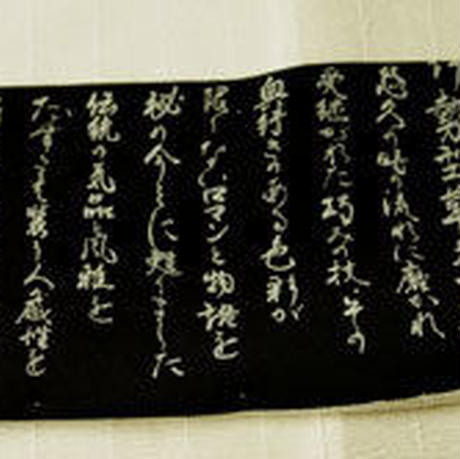 勢型
悠久の時の流れに磨かれ
受継がれた巧みの技、その
奥行きのある色彩が
限りないロマンと物語を
秘め今ここに甦りました
伝統の気品と風雅を
たずさえ装う人の感性を